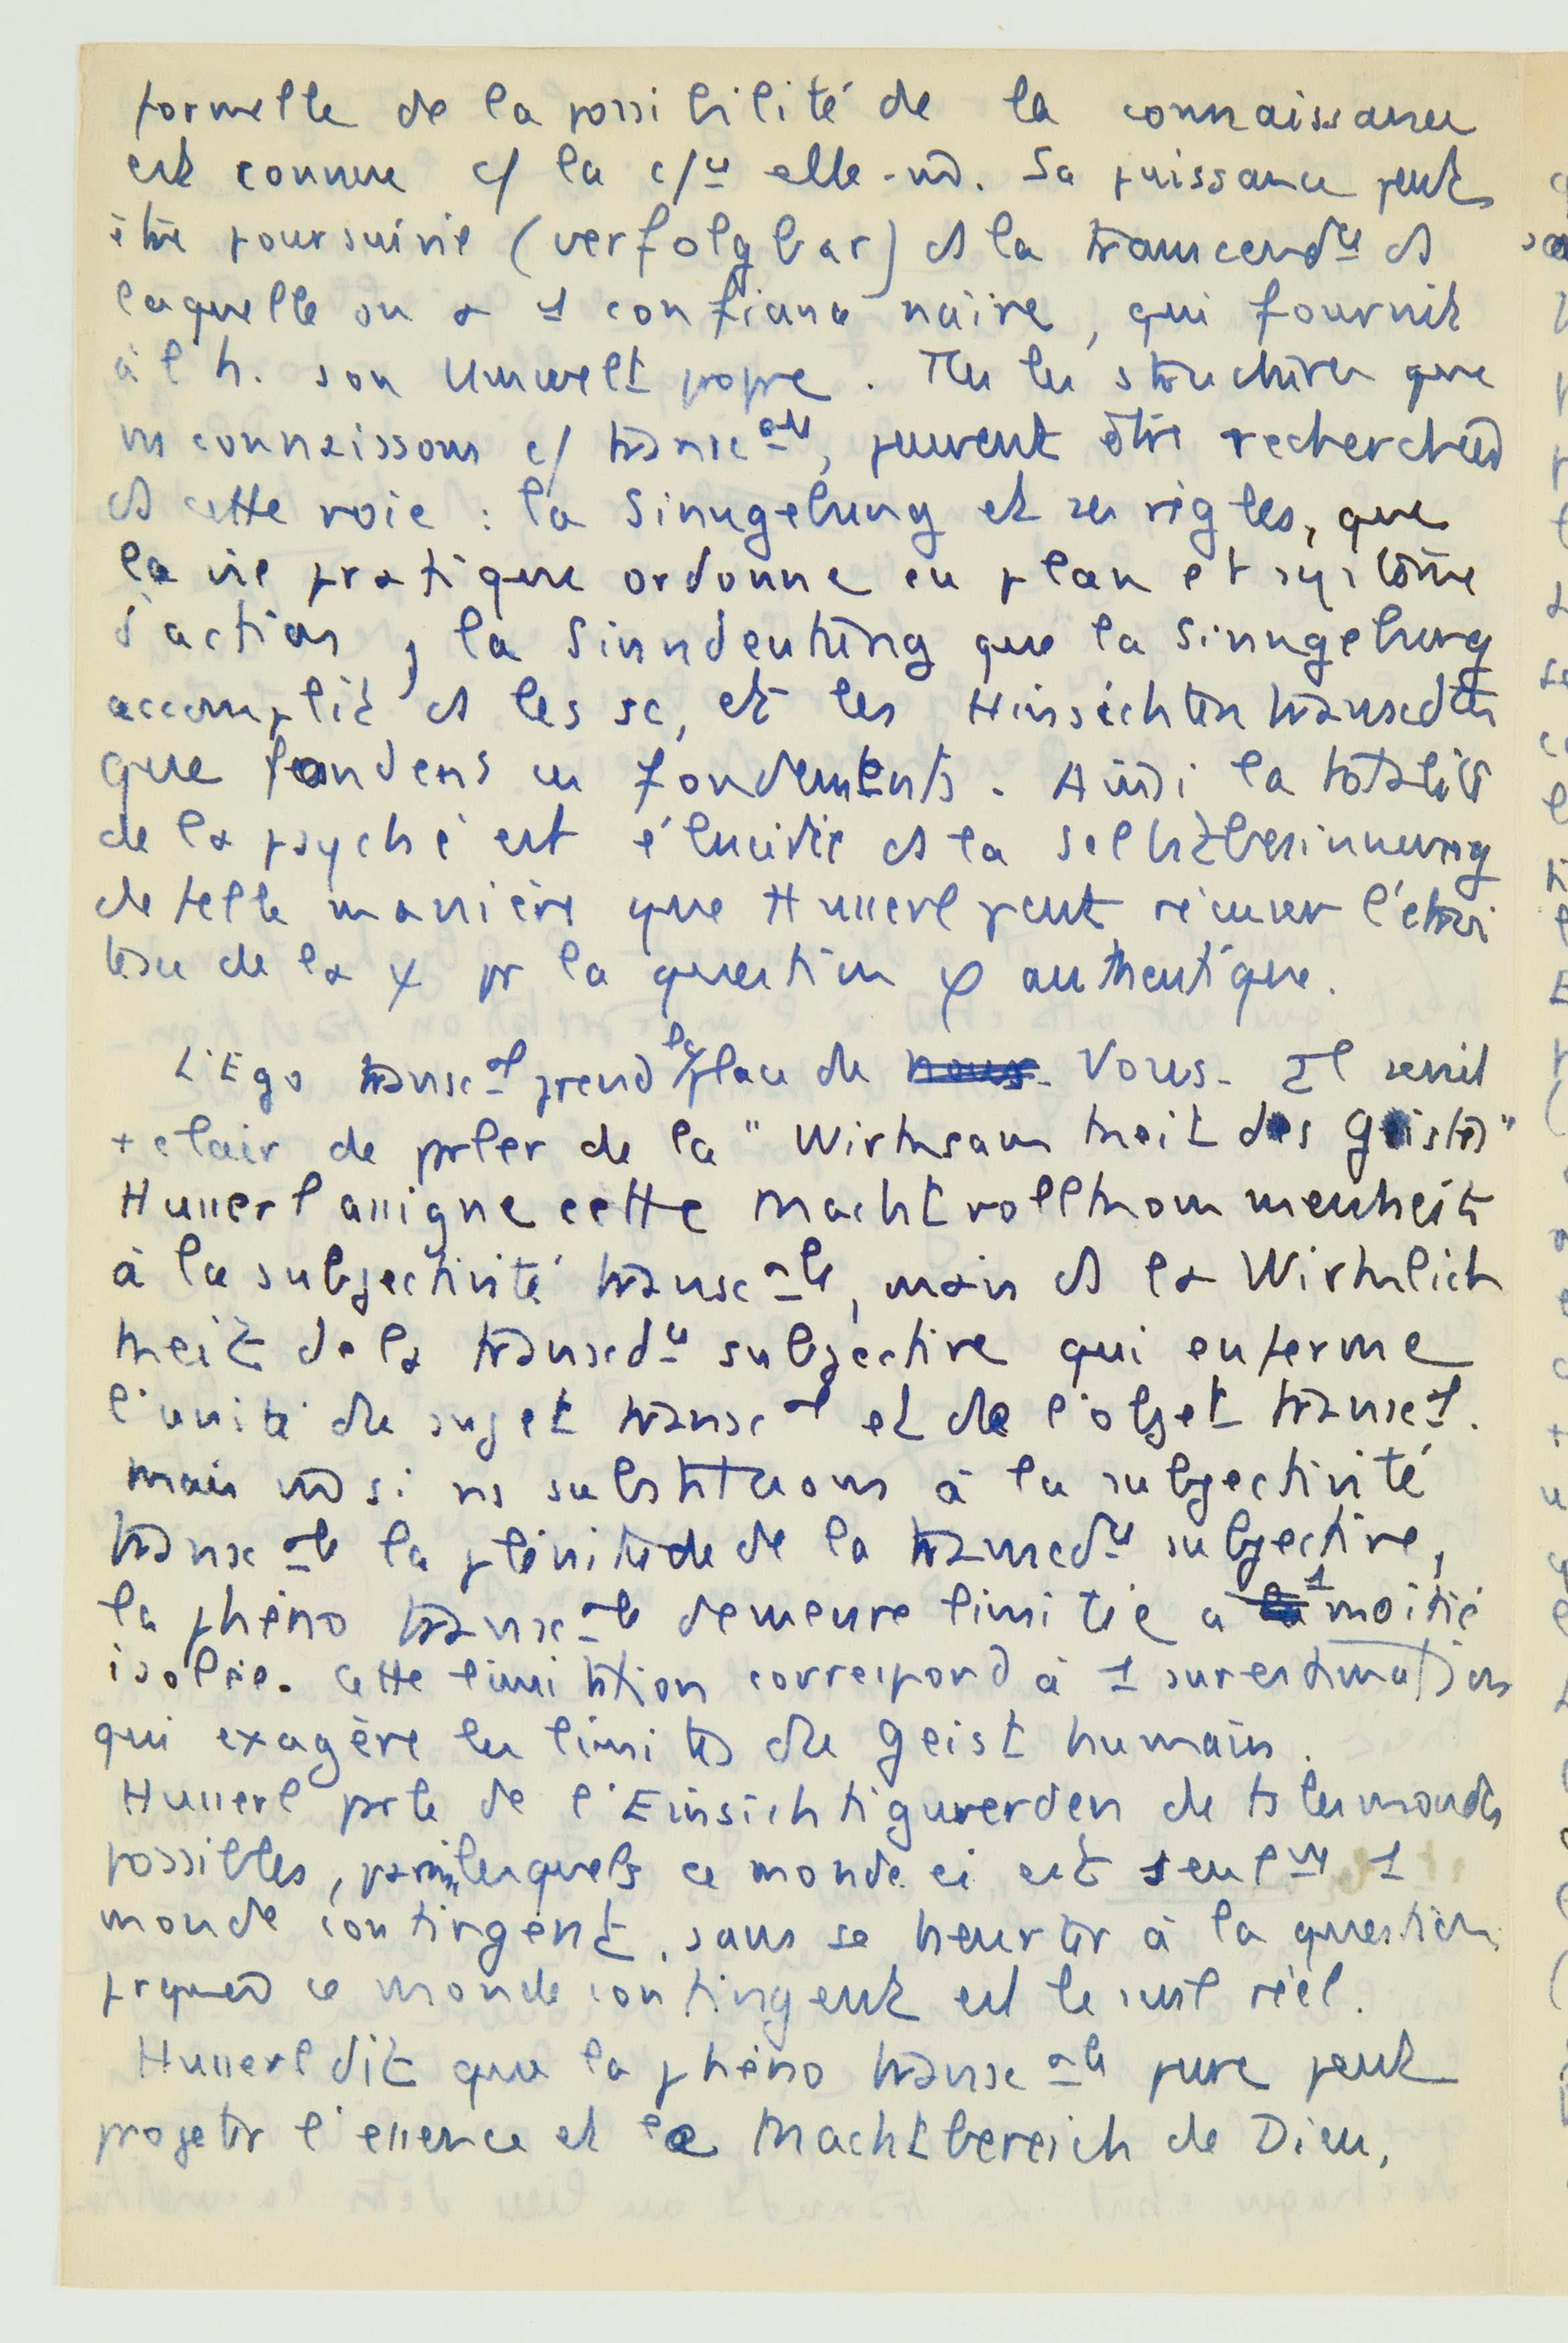 formelle de la possibilité de la connaissance
est connue c/ la c/ce elle-m̂. Sa puissance peut
être poursuivie (verfolgbar) ds la transcendce ds
laquelle on a 1 confiance naïve, qui fournit
à l'h. son Umwelt propre. Ttes les structures que
ns connaissons c/ transcales, peuvent être recherchées
ds cette voie : la Sinngebung et ses règles, que
la vie pratique ordonne en plan et système
d'action, la Sinndeutung que la Sinngebung
accomplit ds les sc, et les Hinsichten transcdtes
que fondens ces fondements. Ainsi la totalité
de la psyché est élucidée ds la Selbstbesinnung
de telle manière que Husserl peut récuser l'étroi
tesse de la ψ pr la question φ authentique.
L'Ego transcal prend la place de nous. Vous. Il serait
+ clair de prler de la "Wirksamkeit des Geistes"
Husserl assigne cette Machtvollkommenheit
à la subjectivité transcale, mais ds la Wirklich
keit de la transcdce subjective qui enferme
l'unité du sujet transcal et de l'objet transct.
mais m̂ si ns substituons à la subjectivité
transcale la plénitude de la transcdce subjective,
la phéno transcale demeure limitée à la 1 moitié
isolée. Cette limitation correspond à 1 surestimation
qui exagère les limites du Geist humain.
Husserl prle de l'Einsichtigwerden de ts les mondes
possibles, parmi lesquels ce monde ci est seulmt 1
monde contingent, sans se heurter à la question
prquoi ce monde contingent est le seul réel.
Husserl dit que la phéno transcale pure peut
projeter l'essence et le Machtbereich de Dieu,